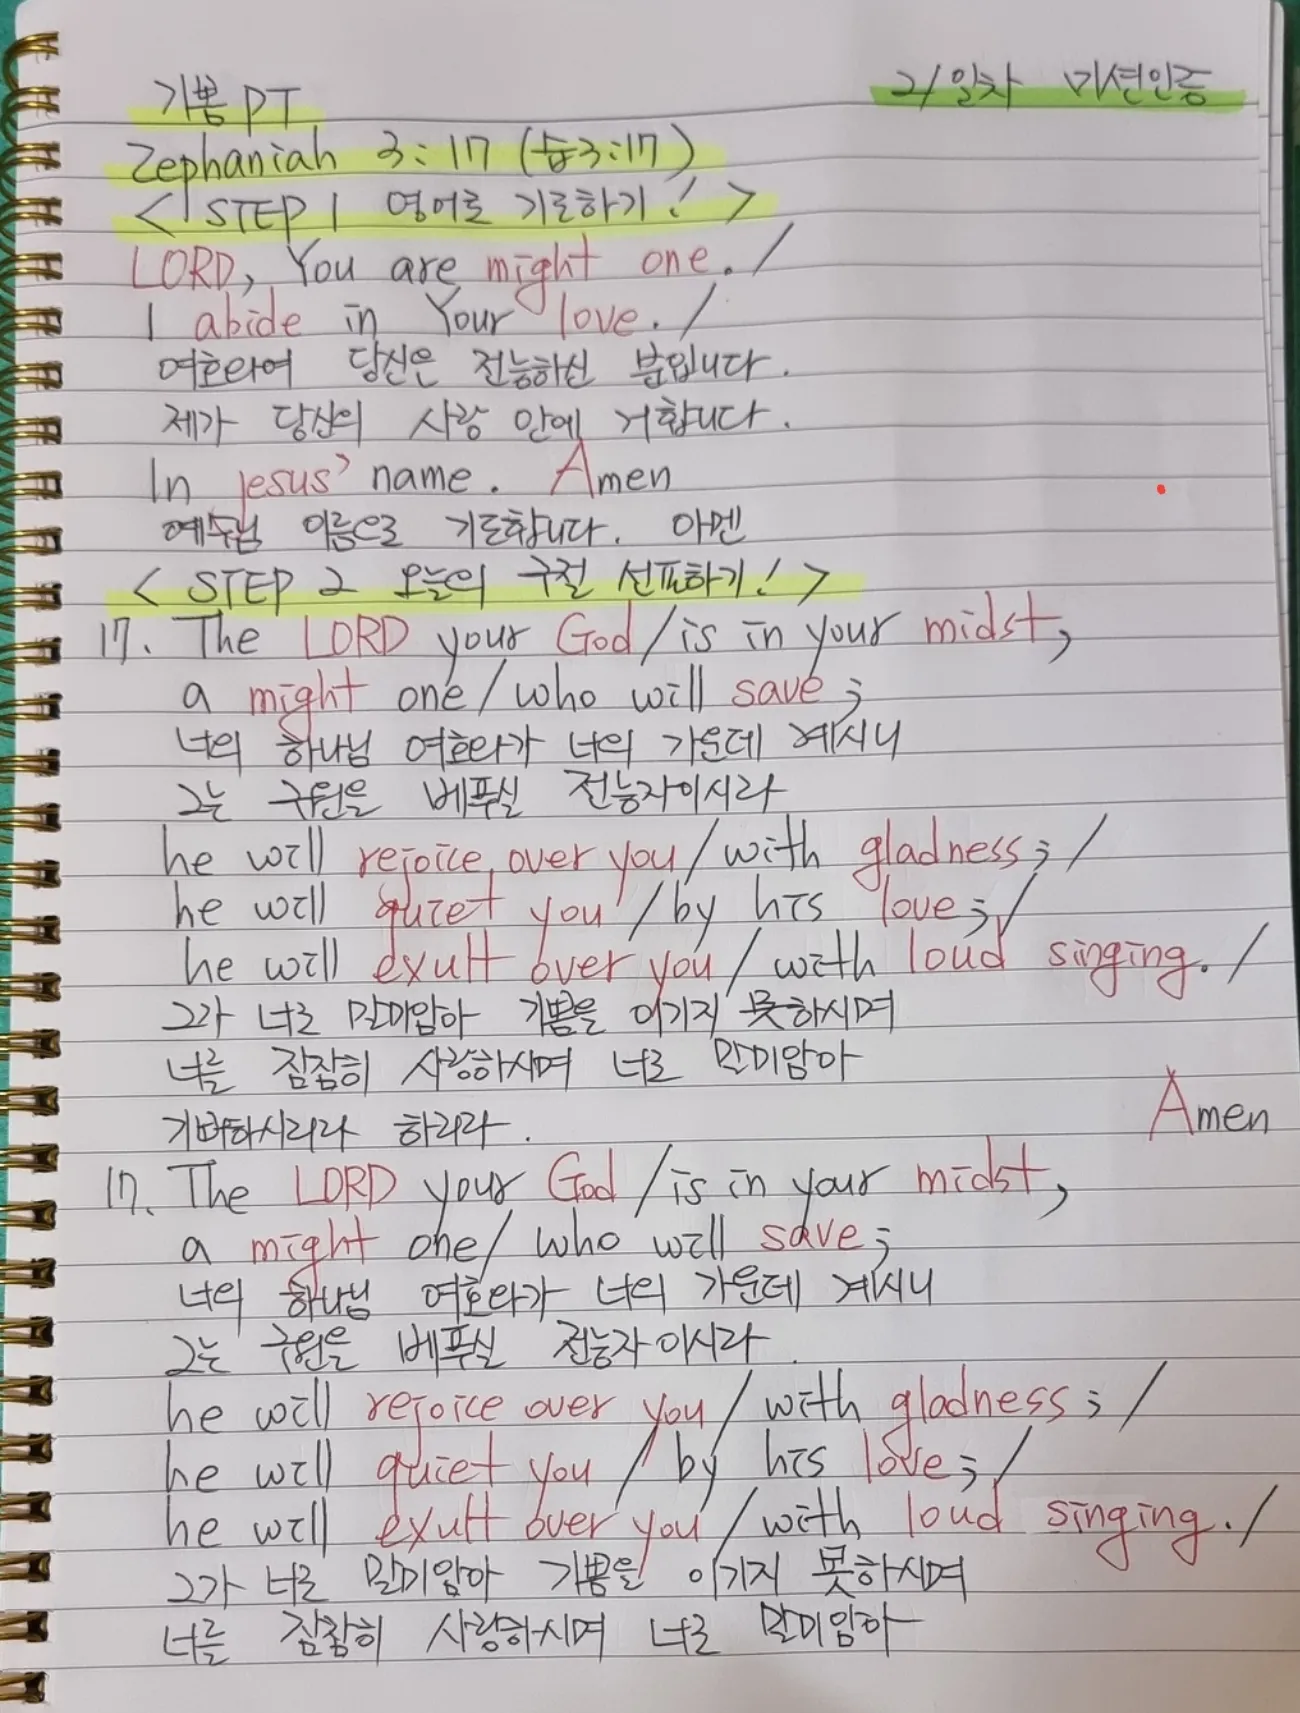 기쁨PT
21일차 미션인증
Zephaniah 3:17 (습3:17)
< STEP 1 영어로 기도하기! >
LORD, You are might one. /
I abide in Your love. /
여호와여 당신은 전능하신 분입니다.
제가 당신의 사랑 안에 거합니다.
In jesus' name. Amen
예수님 이름으로 기도합니다. 아멘
< STEP 2 오늘의 구절 선포하기! >
17. The LORD your God / is in your midst,
a might one / who will save;
너의 하나님 여호와가 너의 가운데 계시니
그는 구원을 베푸실 전능자이시라
he will rejoice over you / with gladness; /
he will quiet you / by his love; /
he will exult over you / with loud singing. /
그가 너로 말미암아 기쁨을 이기지 못하시며
너를 잠잠히 사랑하시며 너로 말미암아
기뻐하시리라 하리라.
Amen
17. The LORD your God / is in your midst,
a might one / who will save;
너의 하나님 여호와가 너의 가운데 계시니
그는 구원을 베푸실 전능자이시라.
he will rejoice over you / with gladness; /
he will quiet you / by his love; /
he will exult over you / with loud singing. /
그가 너로 말미암아 기쁨을 이기지 못하시며
너를 잠잠히 사랑하시며 너로 말미암아